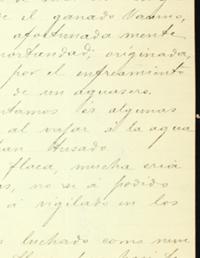 de el ganado Vacuno,
afortunada mente
mortandad; originada,
por el enfreamiento
de un aguasero.
ntamos es algunas
al vajar á la agua
an tusado
flaca, mucha cria
s, no se á podido
á vigilado en los
s luchado como nun